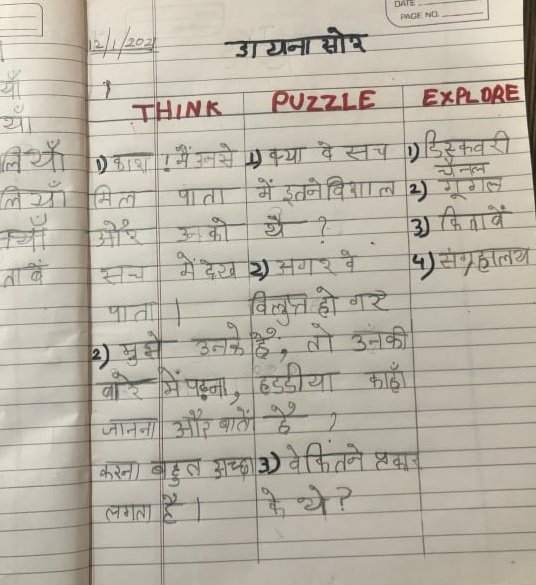 DATE
PAGE NO.
12/1/202
डायनासोर
THINK PUZZLE EXPLORE
याँ
याँ।
लियाँ 1) काश ! मैं उनसे 1) क्या वे सच 1) डिस्कवरी
चैनल
लियाँ मिल पाता में इतने विशाल 2) गूगल
और उनको थे ? 3) किताबें
ताबें सच में देख 2) अगर वे 4) संग्रहालय
पाता । विलुप्त हो गए
2) मुझे उनके हैं, तो उनकी
बारे में पढ़ना, हडडीया काहाँ
जानना और बातें हैं ?
करना बहुत अच्छा 3) वे कितने प्रकार
लगता है । के थे ?